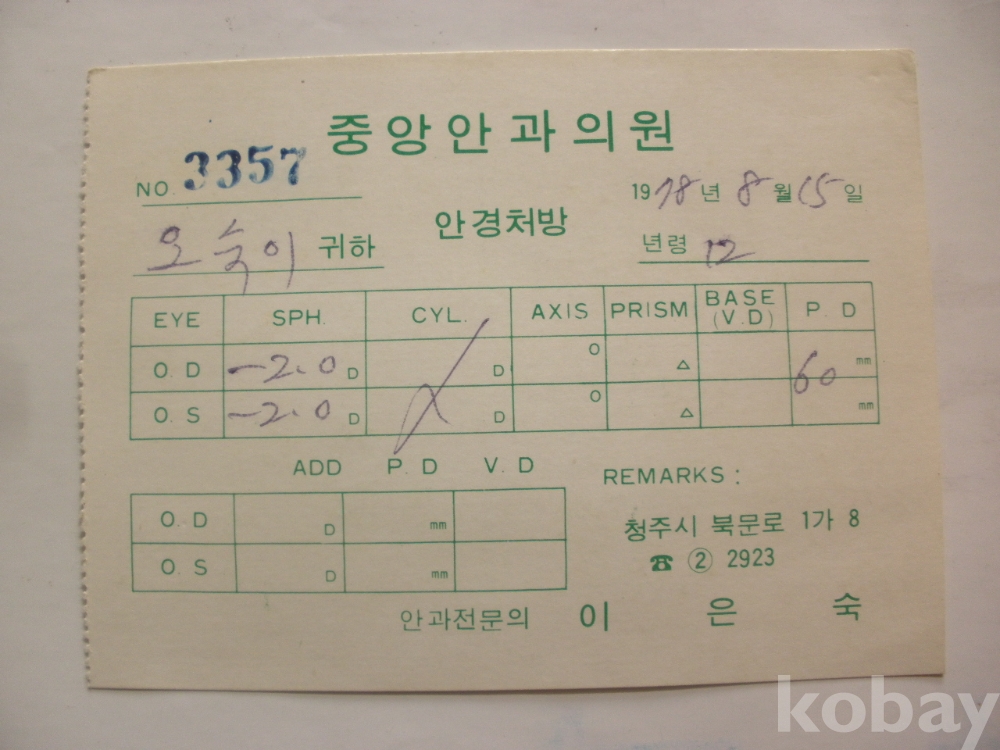 중앙안과의원
NO. 3357
1978년 8월 15일
오숙이 귀하
안경처방
년령 12
EYE SPH. CYL. AXIS PRISM BASE (V.D) P. D
O. D -2.0 D D O △ 60 mm
O. S -2.0 D D O △ mm
ADD P. D V. D
REMARKS :
O. D D mm
O. S D mm
청주시 북문로 1가 8
☎ ② 2923
안과전문의 이 은 숙
kobay